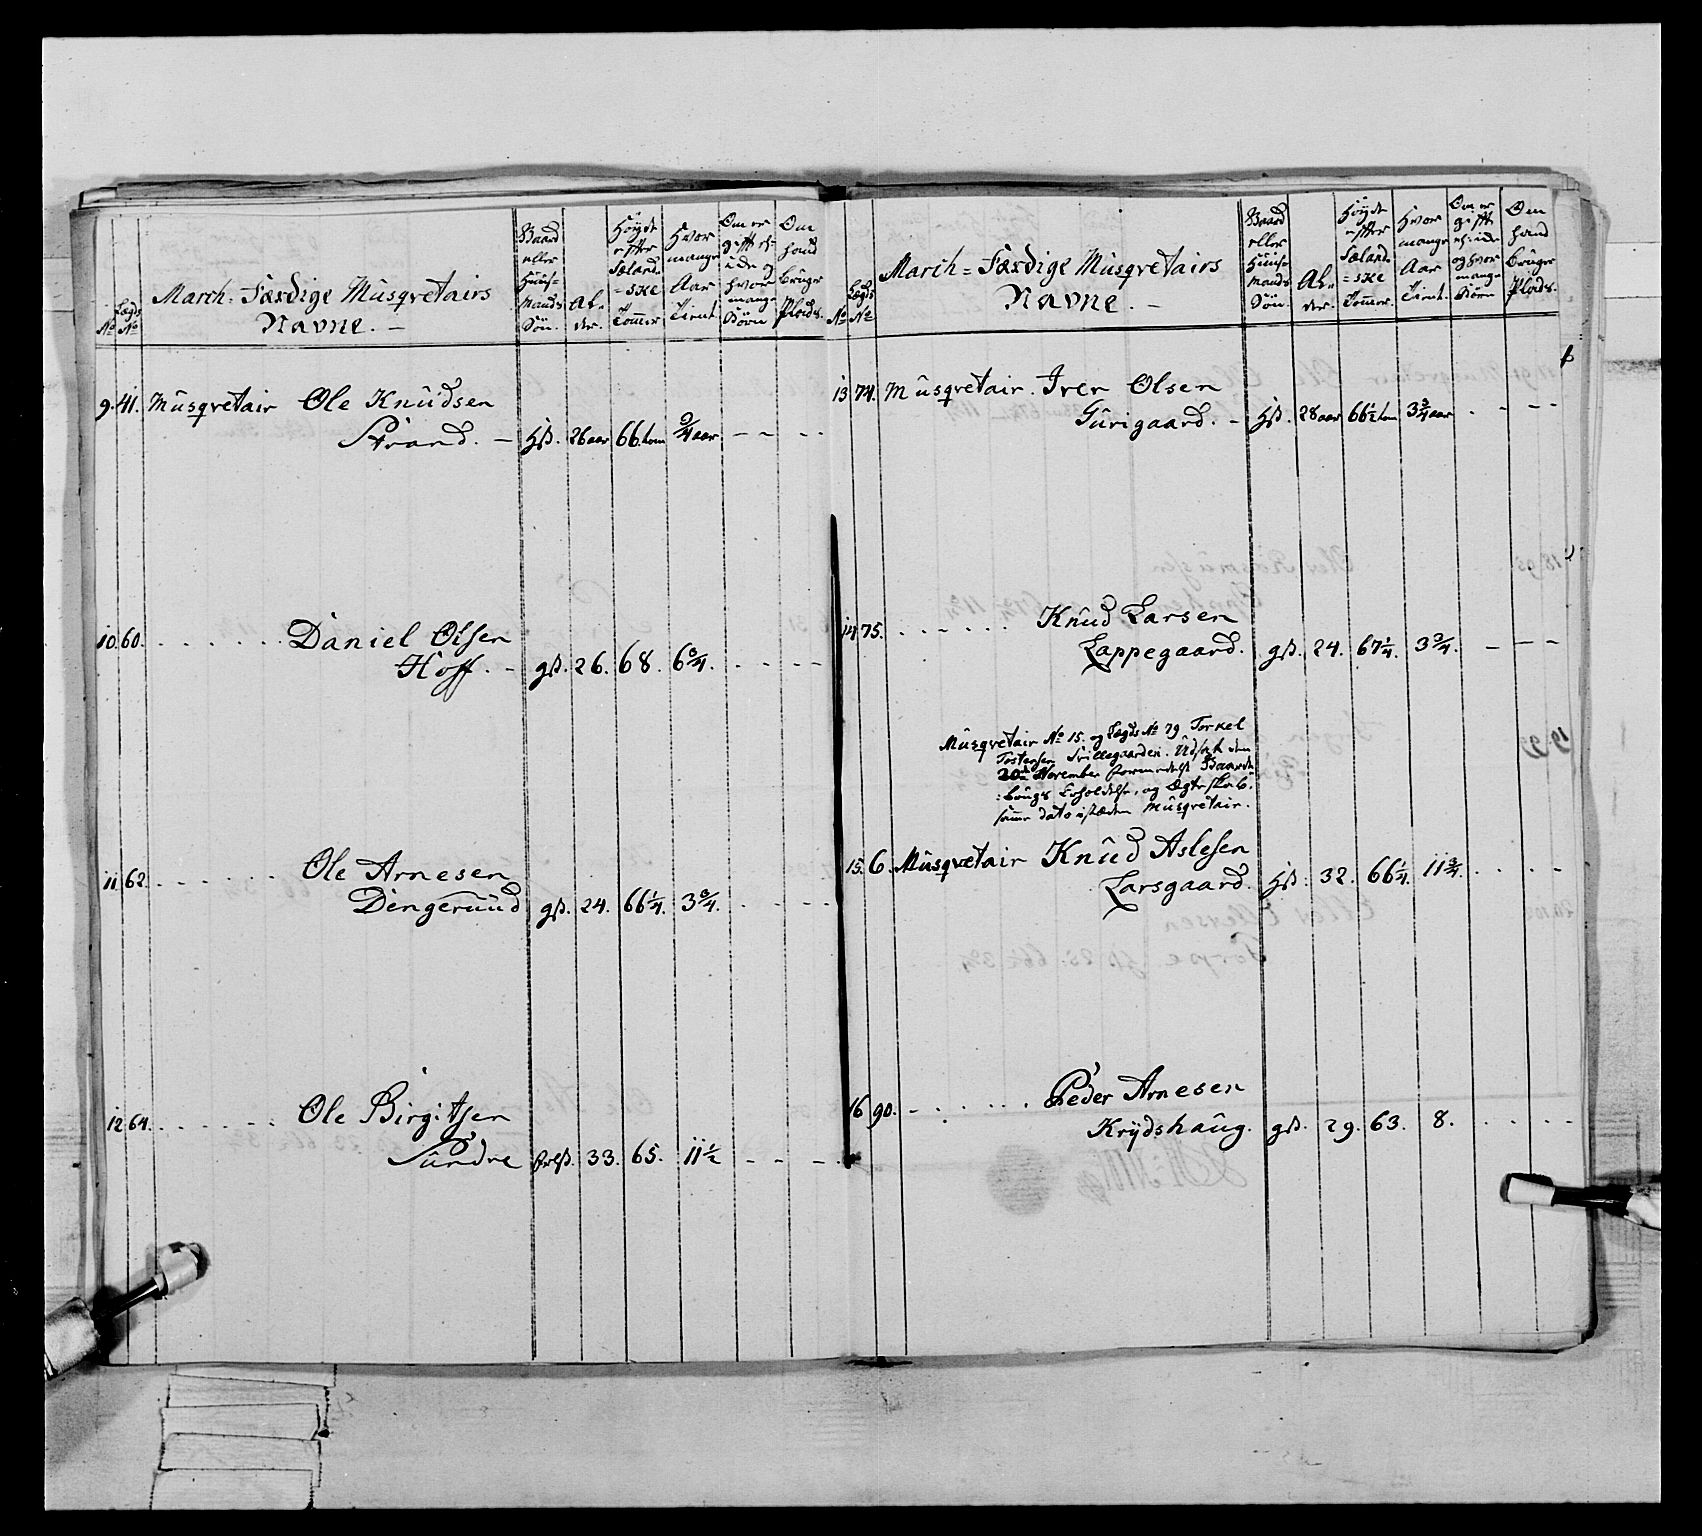 No
Lægds No
March-Færdige Musqvetairs
Navne. –
Baard
eller
Huus-
mands
Søn.
Al-
der.
Høyde
efter
Sæland-
-ske
Tommer
Hvor
mange
Aar
Tient
Om er
gift
og
hvor
mange
Børn
Om
hand
bruger
Plads.
9. 41. Musqvetair Ole Knudsen
Strand. – hß. 26 aar 66 tom 3/4 aar – – – –
10. 60. . . . . . . Daniel Olsen
Hoff. – gß. 26. 68. 6 3/4. . . . .
11. 62. . . . . . . Ole Arnesen
Dengeruud gß. 24. 66 1/4. 3 3/4. . . . .
12. 64. . . . . . . Ole Birgitsen
Sundre 33. 65. 11 1/2 – – – .
No
Lægds No
March-Færdige Musqvetairs
Navne. –
Baard
eller
Huus-
mands
Søn
Al-
der.
Høyde
efter
Sæland-
-ske
Tommer.
Hvor
mange
Aar
Tient.
Om er
gift
og hvor
mange
Børn
Om
hand
bruger
Plads.
13 74. Musqvetair. Iver Olsen
Gurigaard. – hß. 28 aar 66 1/2 tom 3 3/4 aar . – – –
14 75. . . . . . . Knud Larsen
Lappegaard. gß. 24. 67 1/4. 3 3/4. – – –
Musqvetair No 15. og Lægds No 79 Torkel
Tostensen Trillegaarden. Udsat den
20de November formedelst Gaarde-
-brugs Erholdelse, og Ægteskab.
samme dato istæden Musqvetair.
15. 6. Musqvetair Knud Aslesen
Larsgaard. hß. 32. 66 1/4. 11 3/4. . . . .
16 90. . . . . . . Peder Arnesen
Krydshaug. gß. 29. 63. 8. . . . .